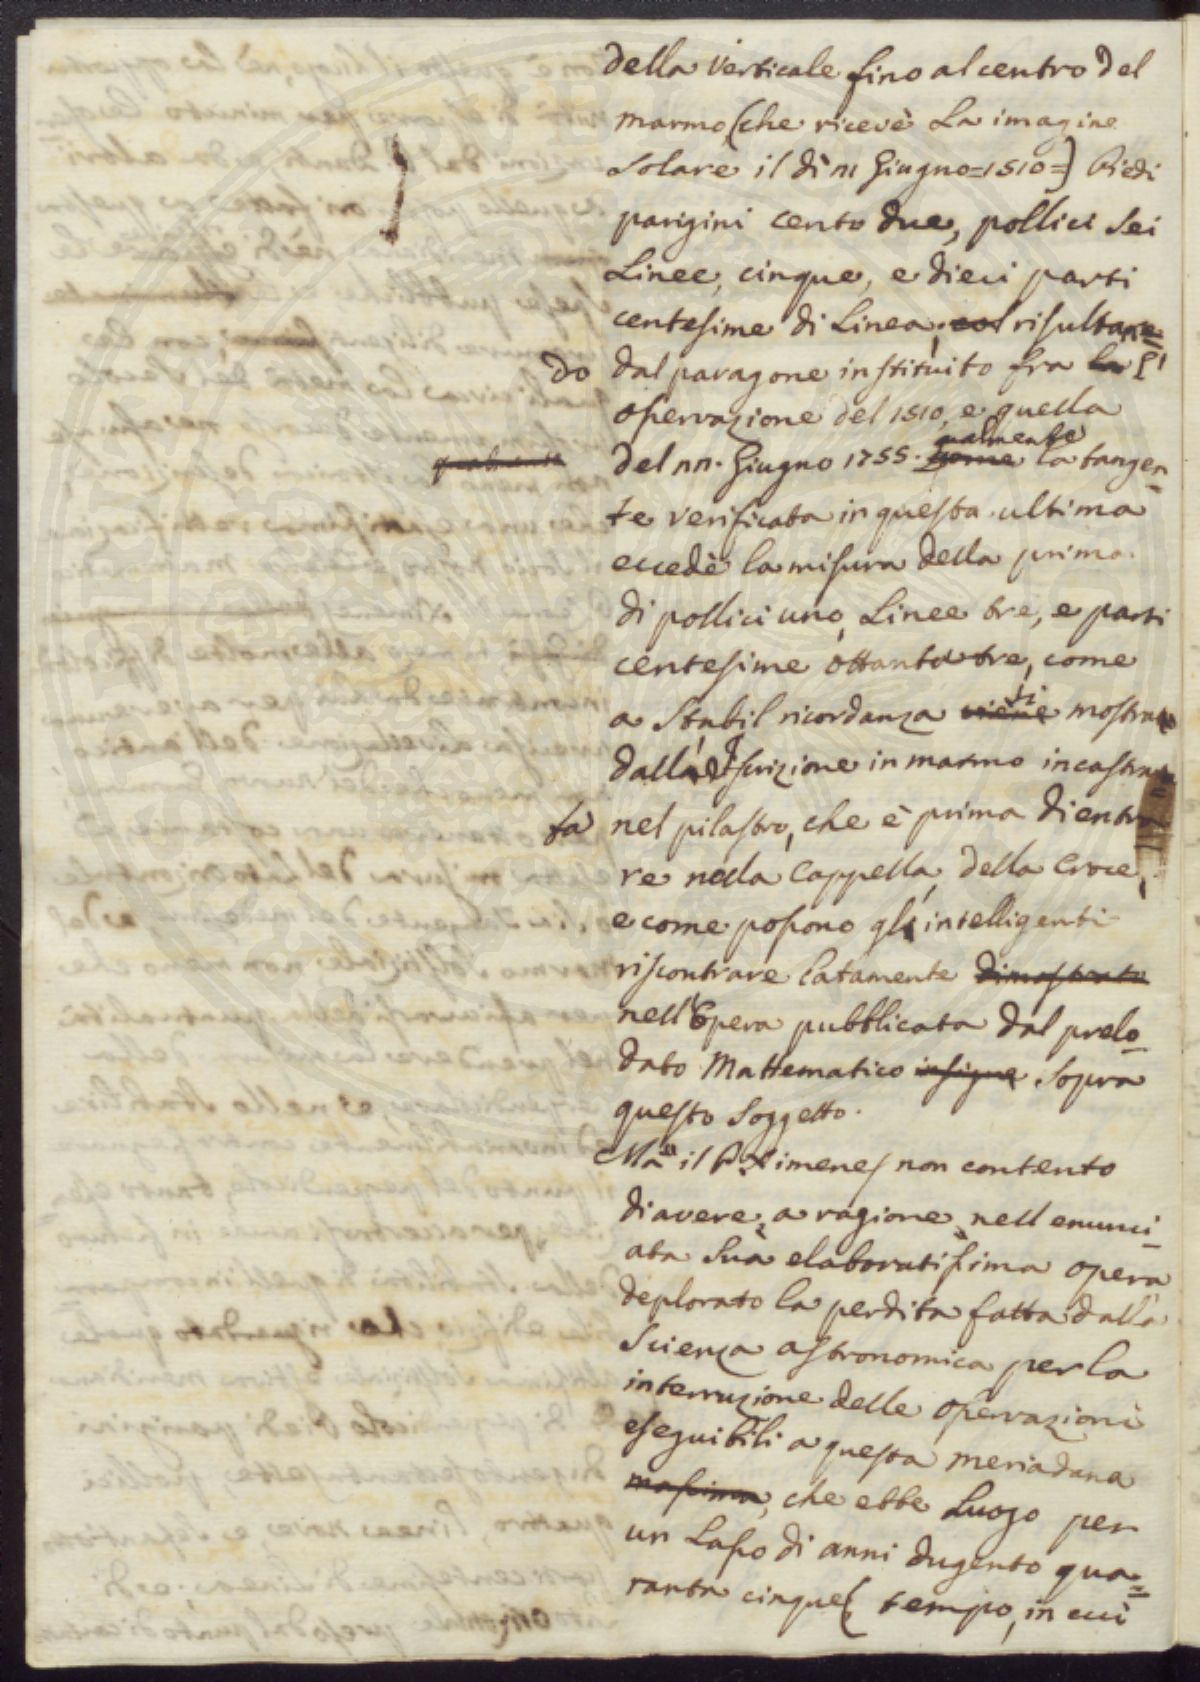 della Verticale fino al centro del
marmo (che ricevè la imagine
Solare il dì 12 Giugno=1510=) Piedi
parigini cento due, pollici Sei
Linee, cinque, e dieci parti
centesime di Linea, col risultan=
do dal paragone instituito fra la l'
osservazione del 1510, e quella
qualmente
del 22. Giugno 1755. come la tangen=
te verificata in questa ultima
eccedè la misura della prima
di pollici uno, Linee tre, e parti
centesime ottantatre, come
si
a Stabil ricordanza viene mostra
dall'Iscrizione in marmo incastra
ta nel pilastro, che è prima di entra
re nella Cappella, della Croce,
e come possono gli intelligenti
riscontrare latamente dimostrato
nell'Opera pubblicata dal prelo=
dato Mattematico insigne Sopra
questo Soggetto.
Ma il P. Ximenes non contento
di avere, a ragione, nell enunci=
ata Sua elaboratissima opera
deplorato la perdita fatta dalla
Scienza astronomica per la
interruzione delle osservazioni
eseguibili a questa meriadana
massima, che ebbe Luogo per
un Lasso di anni dugento qua=
ranta cinque( tempo, in cui